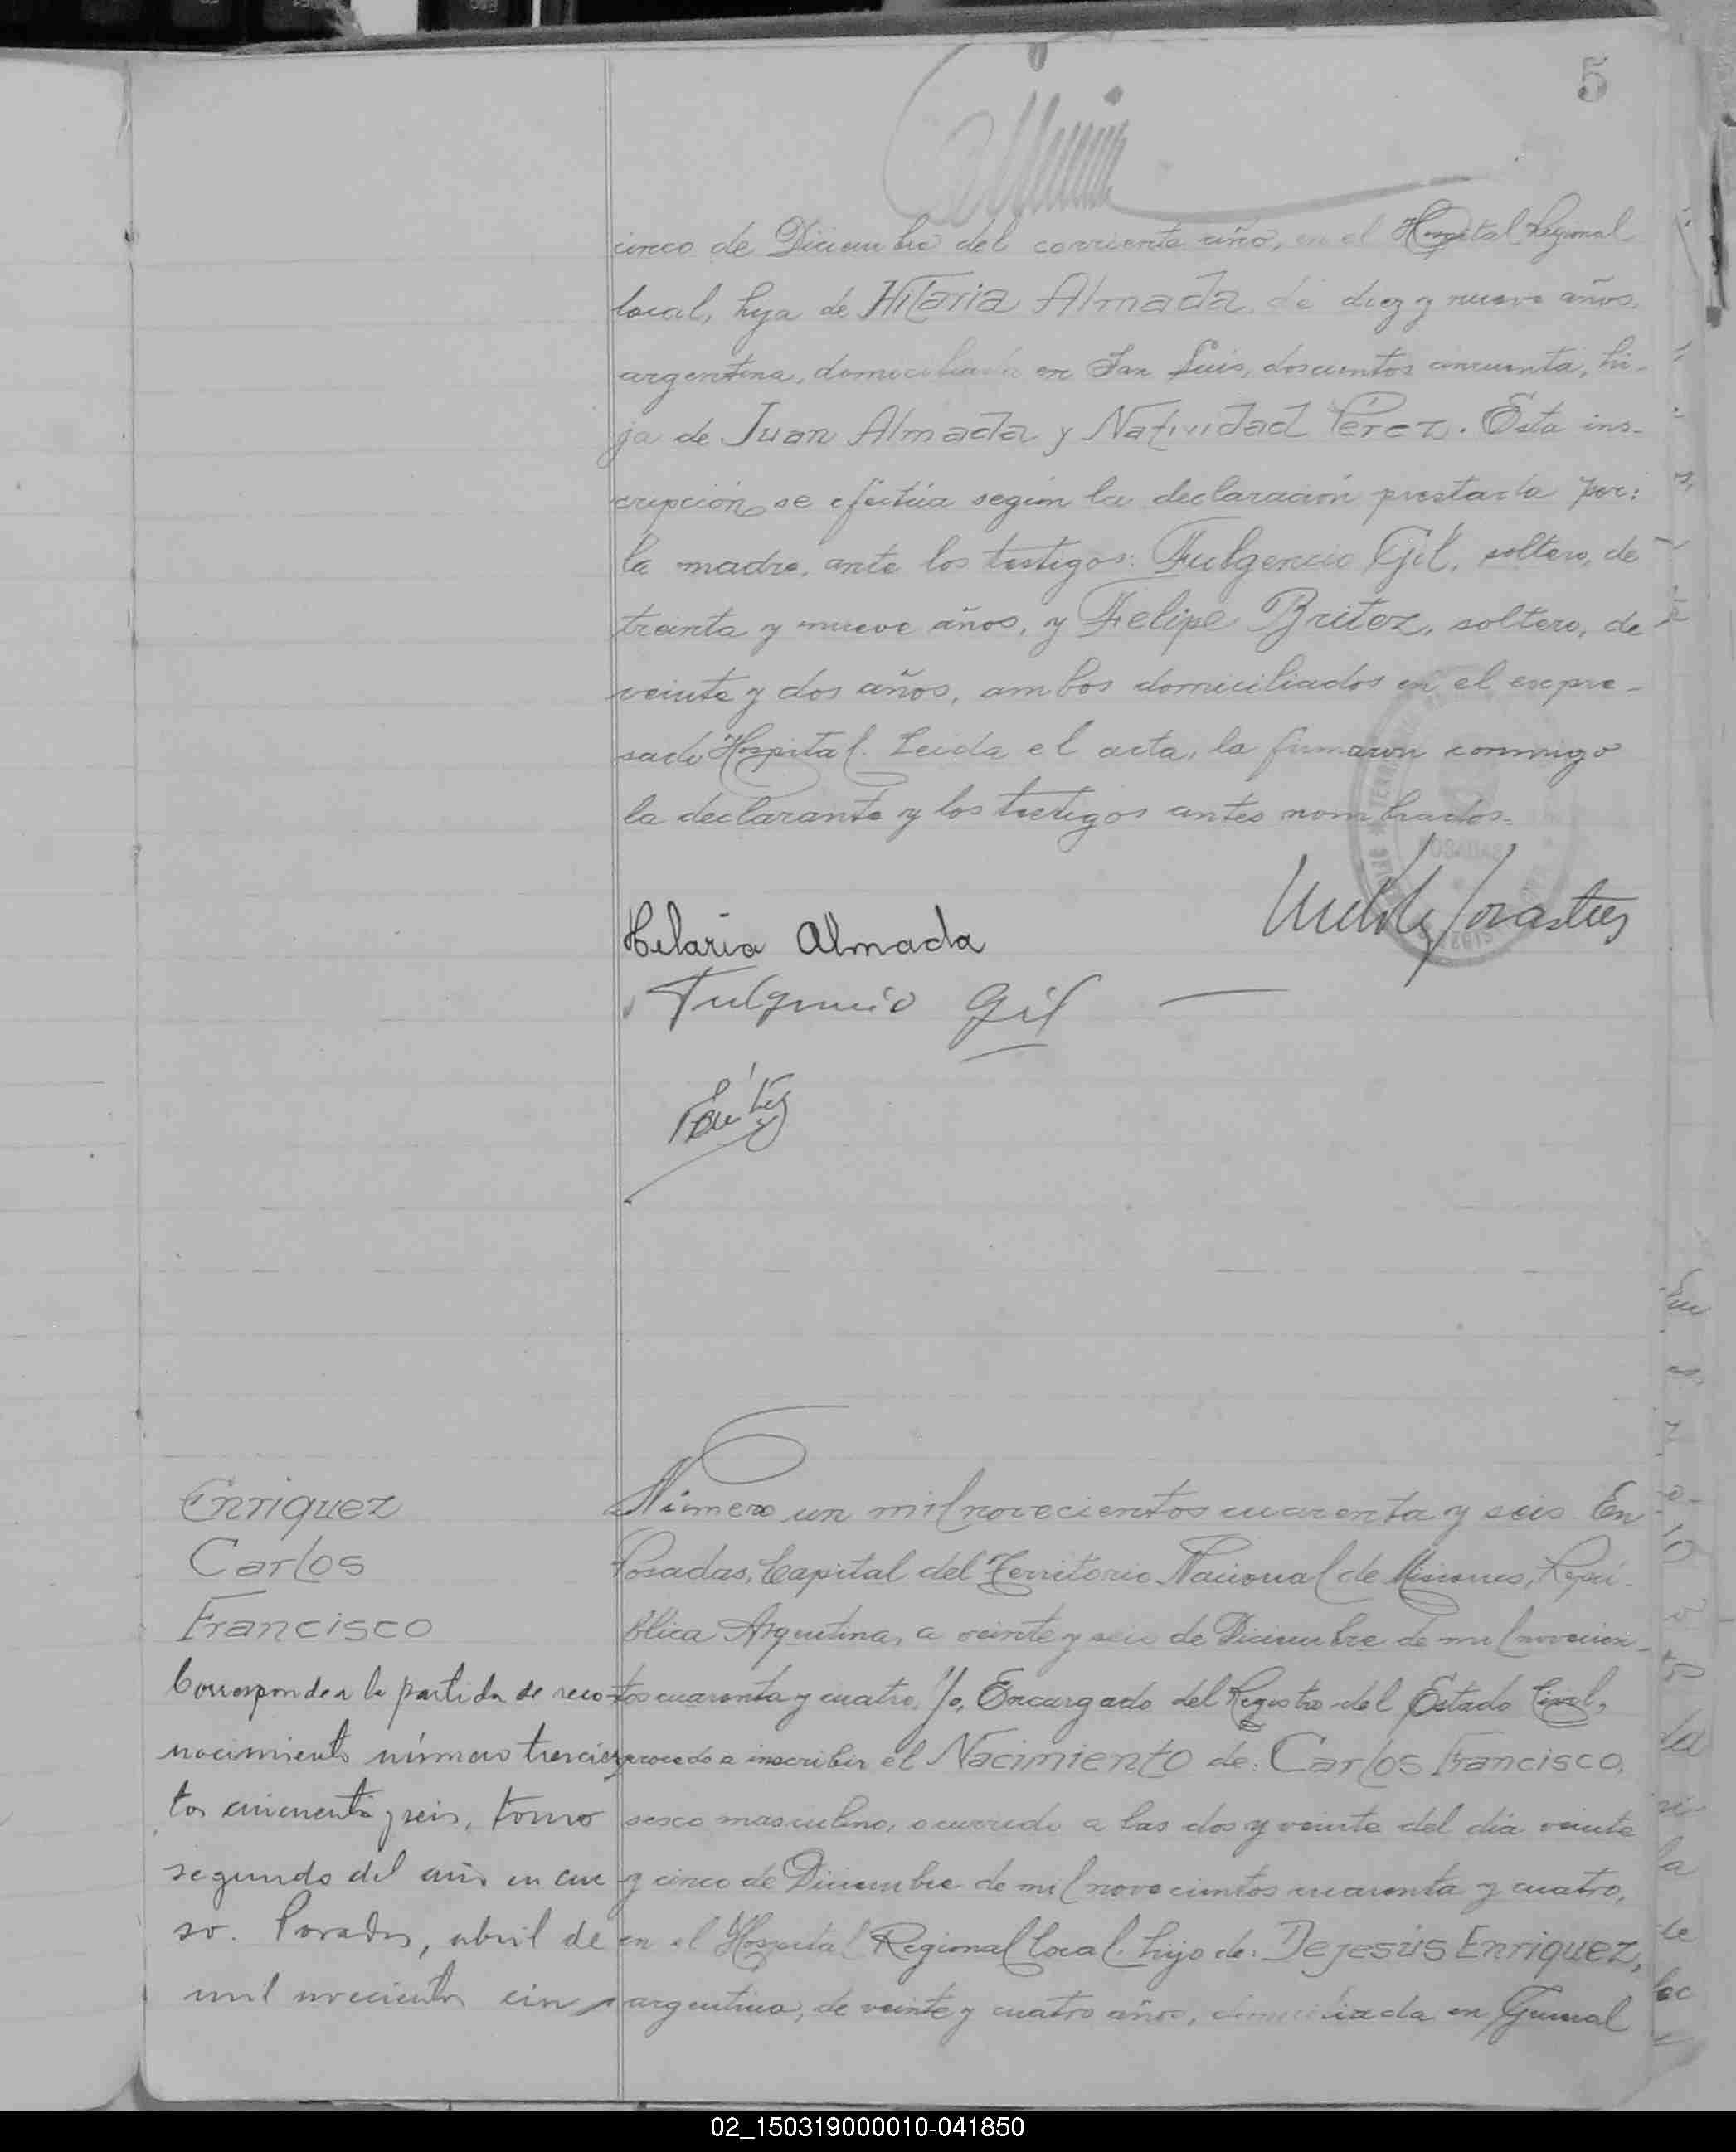 5
cinco de Diciembre del corriente año, en el Hospital Regional
local, hija de Hilaria Almada, de diez y nueve años,
argentina, domiciliada en San Luis, doscientos cincuenta, hi-
ja de Juan Almada y Natividad Pérez. Esta ins-
cripción se efectúa según la declaración prestada por:
la madre, ante los testigos: Fulgencio Gil, soltero, de
treinta y nueve años, y Felipe Britez, soltero, de
veinte y dos años, ambos domiciliados en el expre-
sado Hospital. Leida el acta, la firmaron conmigo
la declarante y los testigos antes nombrados.
POSADAS
Hilaria Almada
Fulgencio Gil
Enriquez
Carlos
Francisco
Corresponde a la partida de reco-
nocimiento número trescien
tos cincuenta y seis, tomo
segundo del año en cur
so. Posadas, abril de
mil novecientos cin
Número un mil novecientos cuarenta y seis En
Posadas, Capital del Territorio Nacional de Misiones, Repú-
blica Argentina, a veinte y seis de Diciembre de mil novecien-
tos cuarenta y cuatro, Yo, Encargado del Registro del Estado Civil,
procedo a inscribir el Nacimiento de: Carlos Francisco,
sexo masculino, ocurrido a las dos y veinte del día veinte
y cinco de Diciembre de mil novecientos cuarenta y cuatro,
en el Hospital Regional local, hijo de: Dejesús Enriquez,
argentina, de veinte y cuatro años, domiciliada en Gumal
02_150319000010-041850